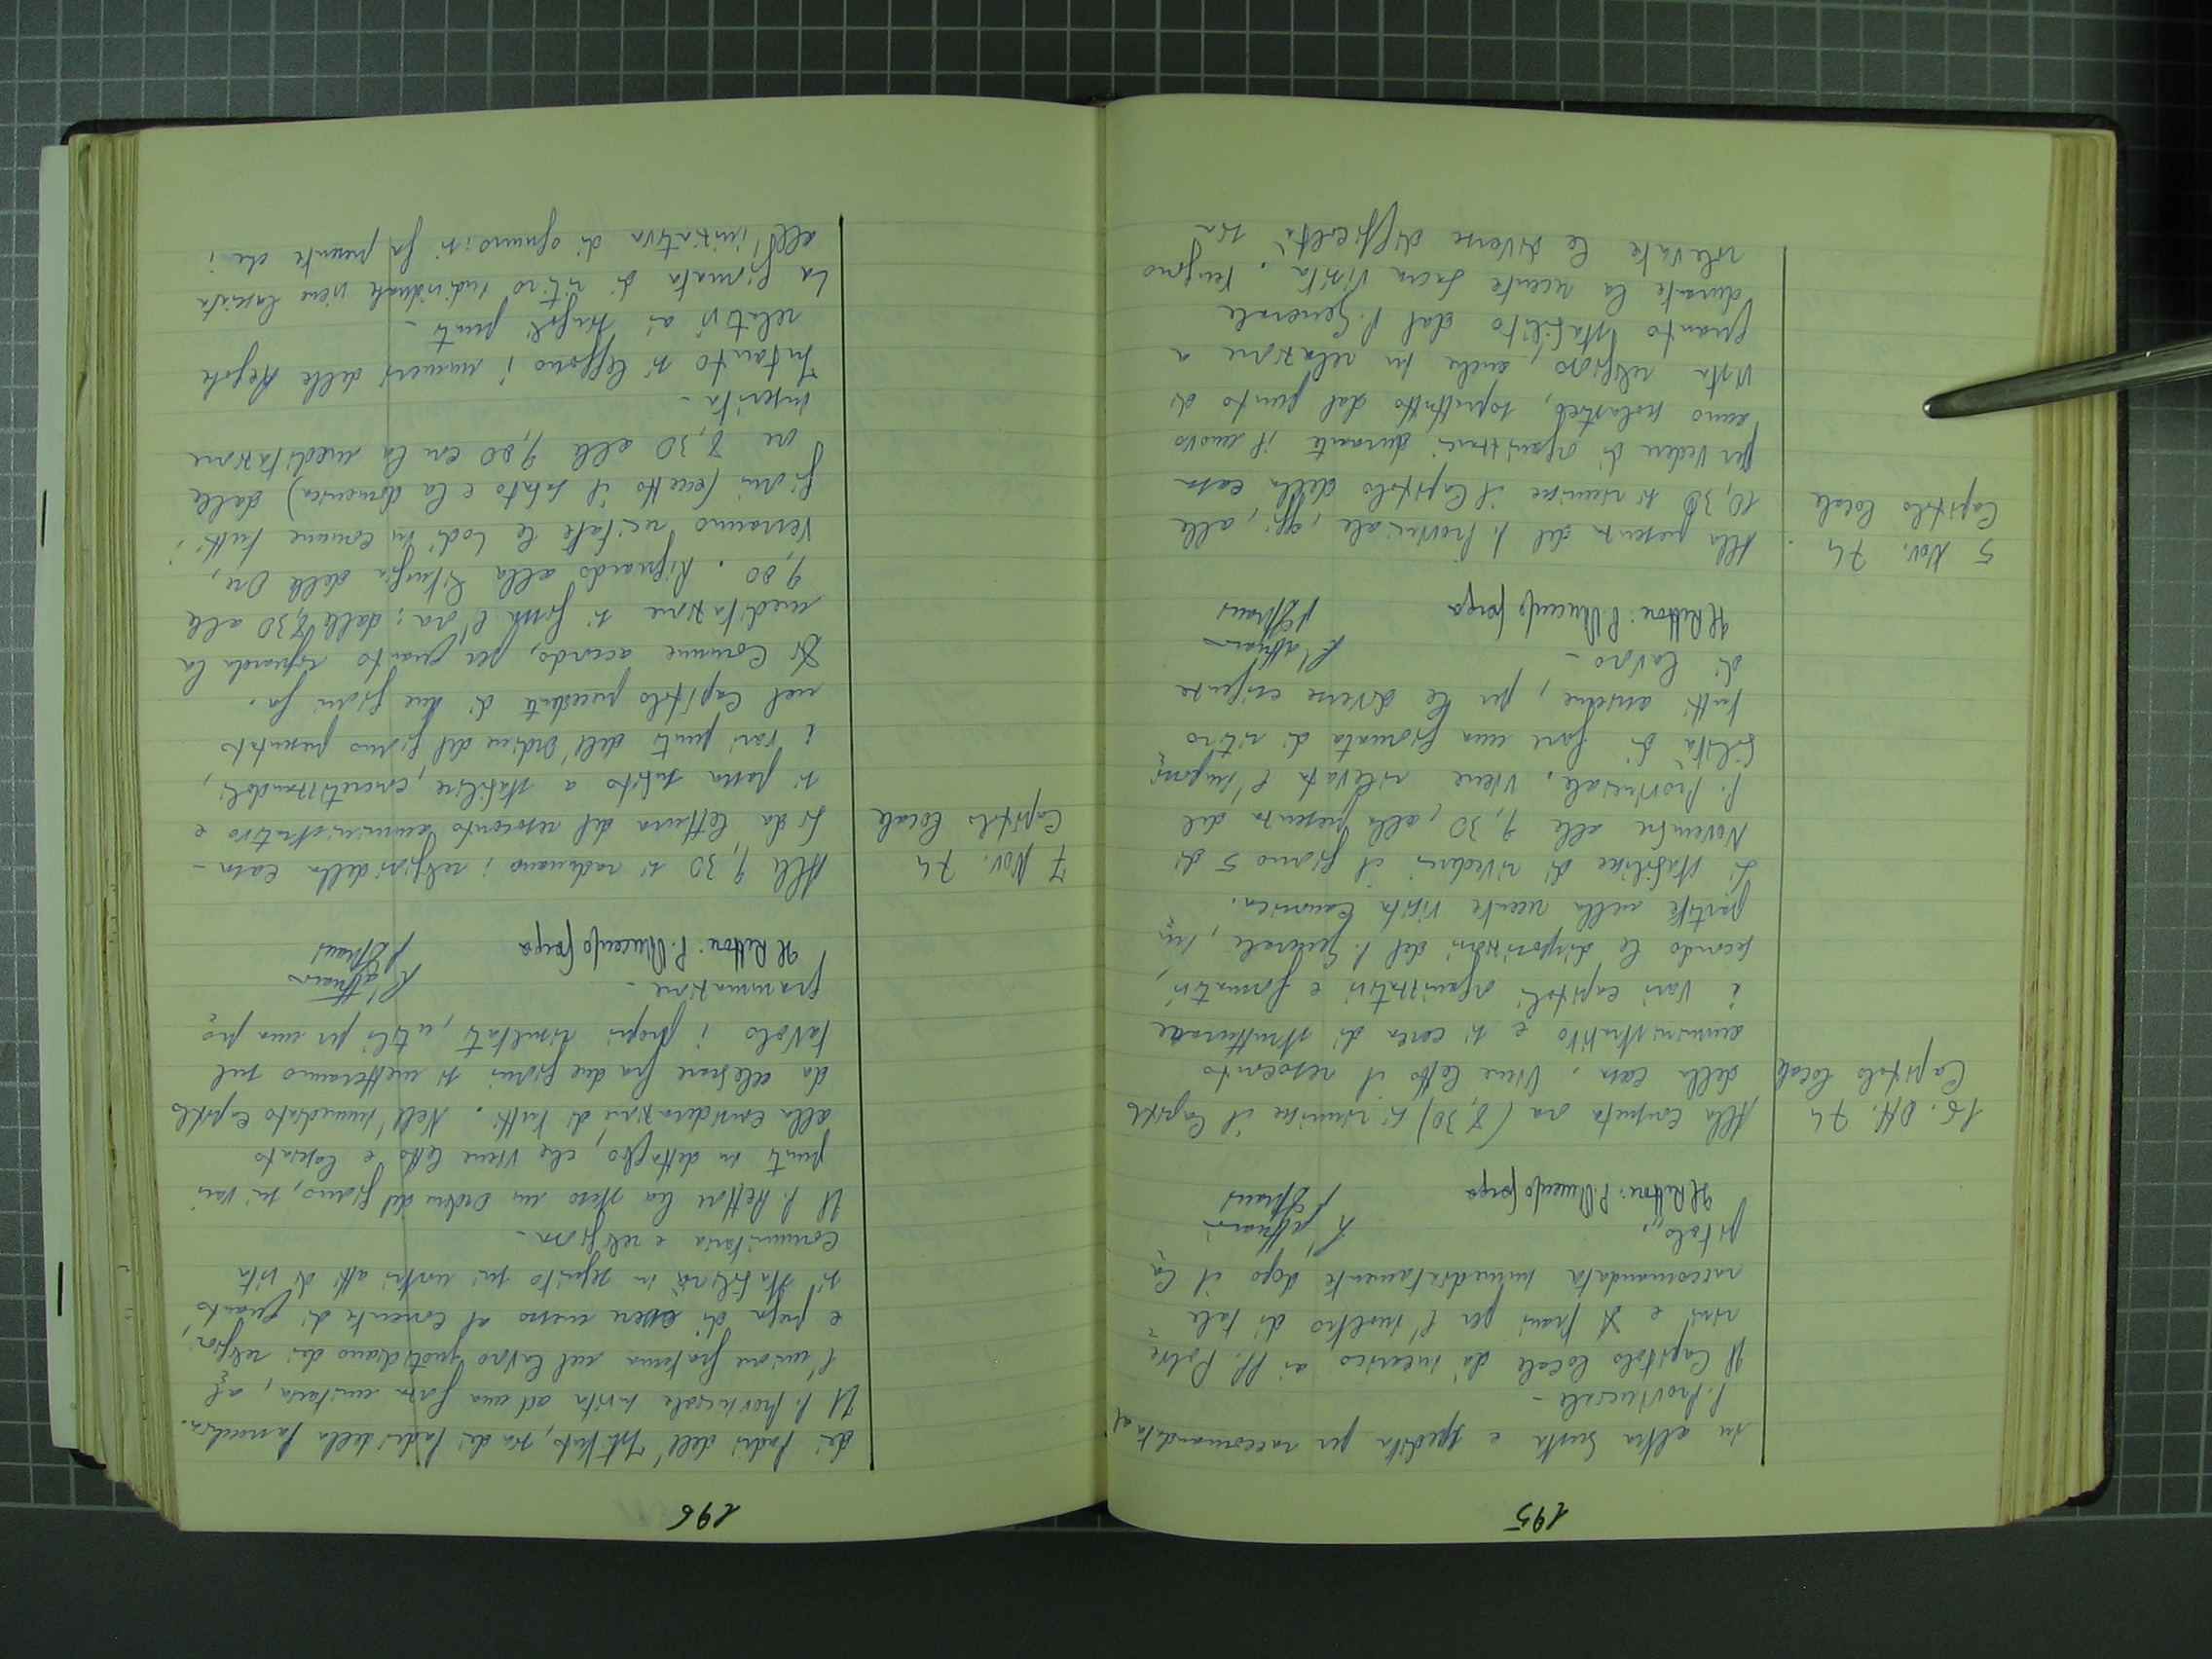 195
in altra busta e spedita per raccomandata al
P. Provinciale -
Il Capitolo locale dà incarico ai PP. Petri=
e per l'inoltro di tale
raccomandata immediatamente dopo il Ca=
pitolo,,
Il Rettore: P. Vincenzo
16. Ott. 74
Capitolo locale
Alla consueta ora (8,30) si riunisce il Capitolo
della casa. Viene letto il resoconto
amministrativo e si cerca di strutturare
i vari capitoli organizzativi e formativi,
secondo le disposizioni del P. Generale, im=
partite nella recente visita Canonica.
Si stabilisce di rivederci il giorno 5 di
Novembre alle 9,30, alla presenza del
P. Provinciale. Viene rilevata l'impossi=
bilità di fare una giornata di ritiro
tutti assieme, per le diverse esigenze
di lavoro -
Il Rettore: P. Vincenzo
5 Nov. 74
Capitolo locale
Alla presenza del P. Provinciale, oggi, alle
10,30 si riunisce il Capitolo della casa
per vedere di organizzarci durante il nuovo
anno scolastico, soprattutto dal punto di
vista religioso, anche in relazione a
quanto stabilito dal P. Generale
durante la recente Sacra Visita. Vengono
rilevate le diverse difficoltà sia
196
dei Padri dell'Istituto, sia dei Padri della Parrocchia.
Il P. Provinciale invita ad una forza unitaria, al=
l'unione fraterna nel lavoro quotidiano dei religiosi,
e prega di essere messo al corrente di quanto
si stabilirà in seguito sui nostri atti di vita
comunitaria e religiosa -
Il P. Rettore ha steso un ordine del giorno, sui vari
punti in dettaglio, che viene letto e lasciato
alla considerazione di tutti. Nell'immediato Capitolo
da celebrare fra due giorni si metteranno sul
tavolo i propri risultati, utili per una pro=
grammazione -
Il Rettore: P. Vincenzo
7 Nov. 74
Capitolo locale
Alle 9,30 si radunano i religiosi della casa -
Si dà lettura del resoconto amministrativo e
si passa subito a stabilire, concretizzandoli,
i vari punti dell'ordine del giorno presentato
nel Capitolo precedente di due giorni fa.
Di comune accordo, per quanto riguarda la
meditazione si fissa l'ora: dalle 8,30 alle
9,00. Riguardo alla Liturgia delle Ore,
verranno recitate le Lodi in comune tutti i
giorni (eccetto il sabato e la domenica) dalle
ore 8,30 alle 9,00 con la meditazione
inserita -
Intanto si leggono i numeri delle Regole
relativi ai singoli punti -
La giornata di ritiro individuale viene lasciata
all'iniziativa di ognuno: si fa presente che i